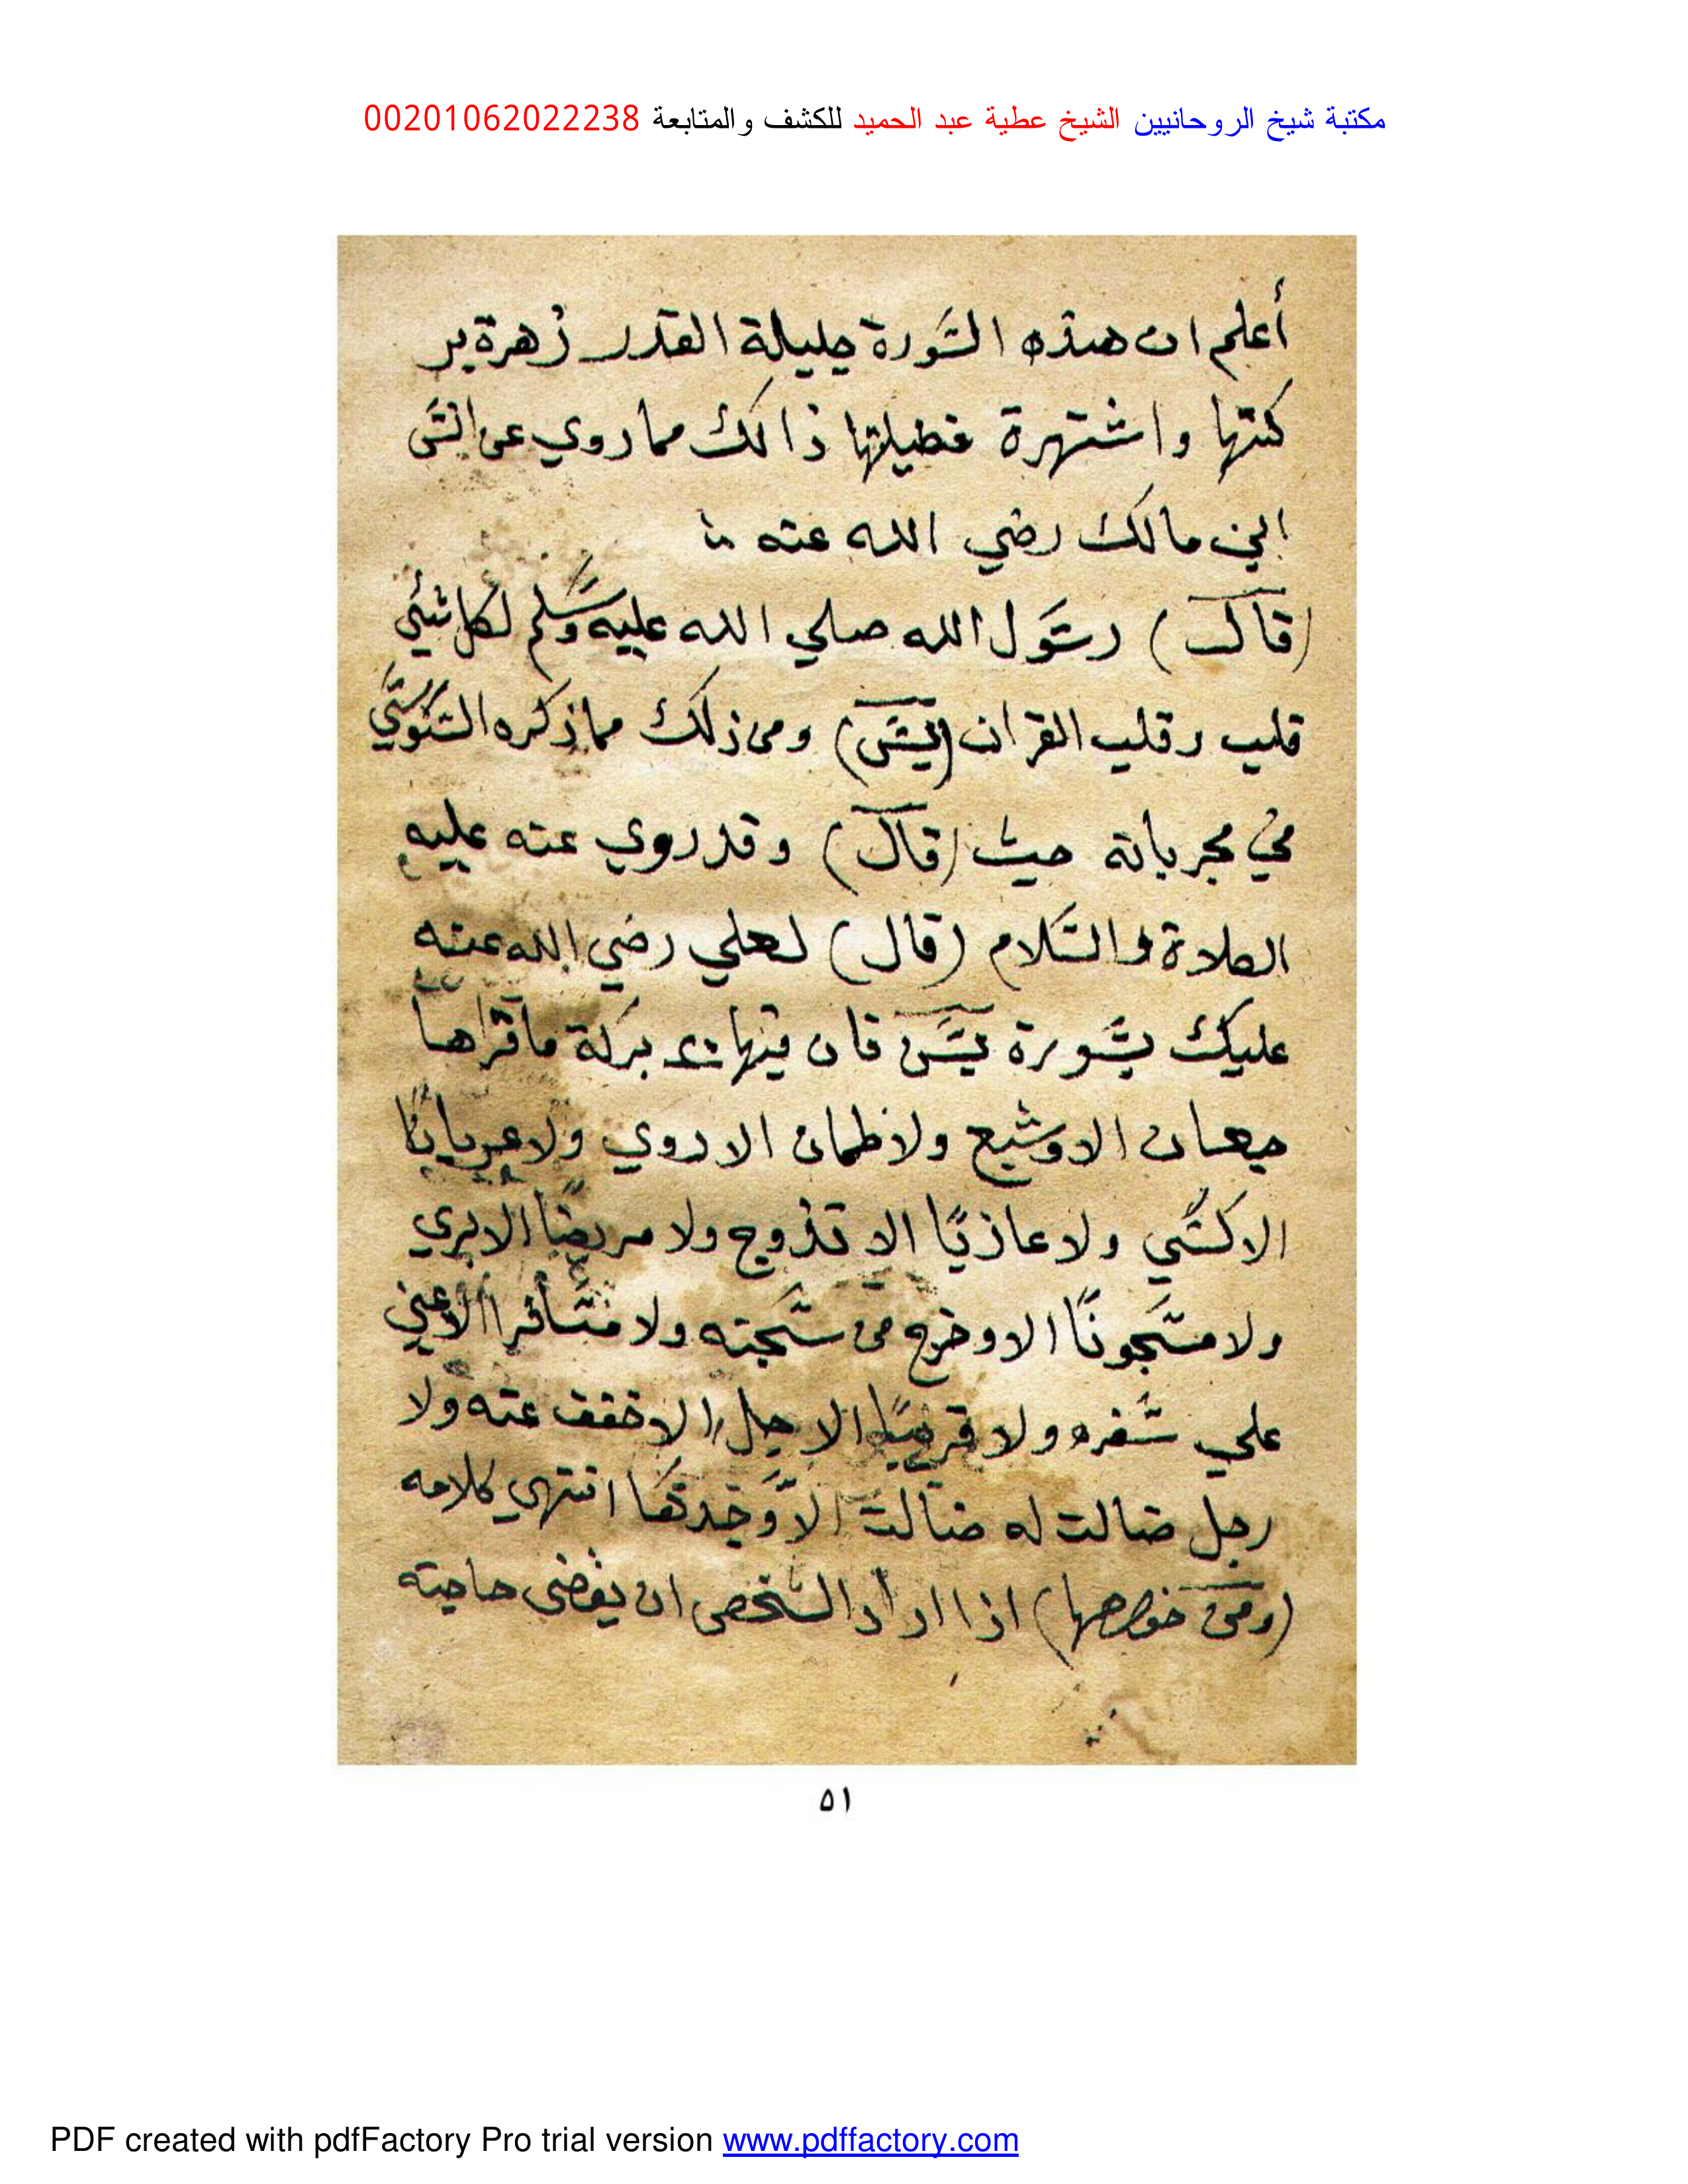 مكتبة شيخ الروحانيين الشيخ عطية عبد الحميد للكشف والمتابعة 00201062022238
أعلم ان هذه السورة جليلة القدر زهرة بر
كتها واشتهرة فضيلتها ذالك مما روي عن انس
ابن مالك رضي الله عنه
(قال) رسول الله صلي الله عليه وسلم لكل شئي
قلب وقلب القران (يس) ومن ذلك مما ذكره السنوسي
في مجرباته حيث (قال) وقد روي عنه عليه
الصلاة والسلام (قال) لعلي رضي الله عنه
عليك بسورة يس فان فيها بركة ما قراها
جيعان الا وشبع ولا ظمان الا روي ولا عريانا
الا كسي ولا عازبا الا تزوج ولا مريضا الا بري
ولا مسجونا الا وخرج من سجنه ولا مسافرا الا عين
علي سفره ولا الا خفف عنه ولا
رجل ضالت له ضالت الا وجدها انتهي كلامه
(ومن خواصها) اذا اراد الشخص ان يقضى حاجته
٥١
PDF created with pdfFactory Pro trial version www.pdffactory.com